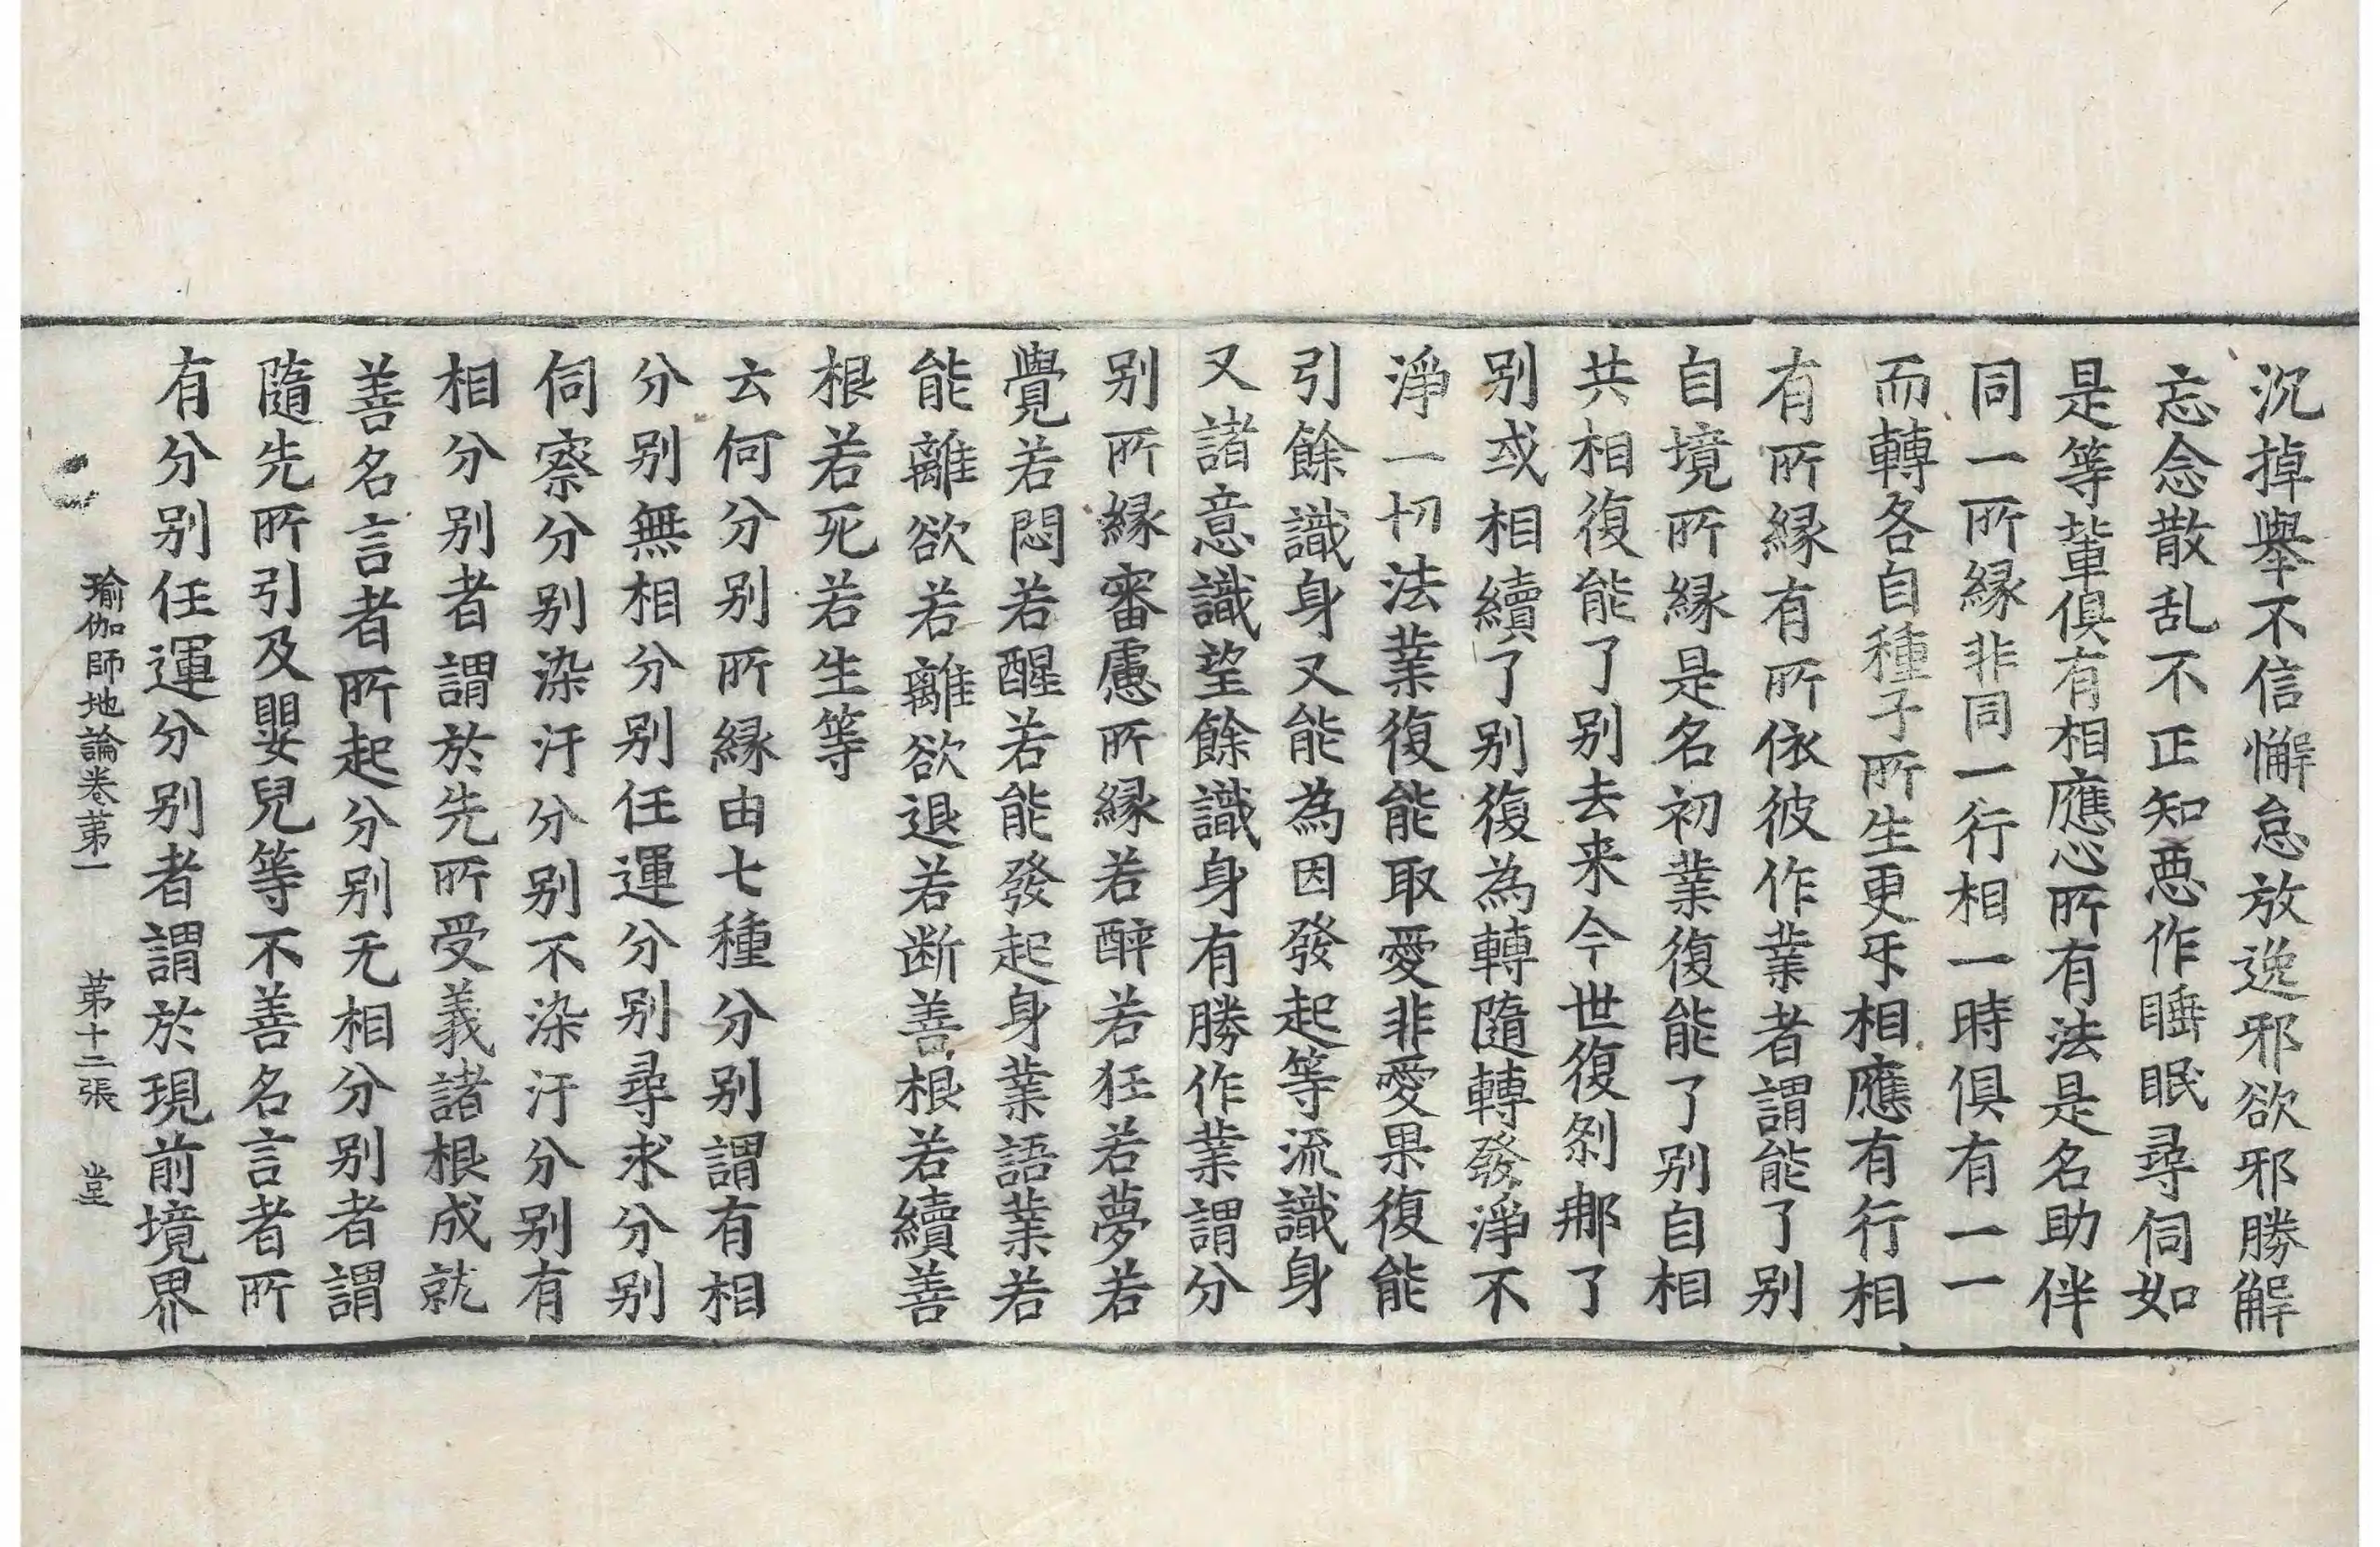 沉掉舉不信懈怠放逸邪欲邪勝解
忘念散乱不正知惡作睡眠尋伺如
是等輩俱有相應心所有法是名助伴
同一所緣非同一行相一時俱有一一
而轉各自種子所生更乐相應有行相
有所緣有所依彼作業者謂能了別
自境所緣是名初業復能了別自相
共相復能了別去来今世復剎那了
別或相續了別復為轉隨轉發淨不
淨一切法業復能取愛非愛果復能
引餘識身又能為因發起等流識身
又諸意識望餘識身有勝作業謂分
別所緣審慮所緣若醉若狂若夢若
覺若悶若醒若能發起身業語業若
能離欲若離欲退若断善根若續善
根若死若生等
云何分別所緣由七種分別謂有相
分別無相分別任運分別尋求分別
伺察分別染汙分別不染汙分別有
相分別者謂於先所受義諸根成就
善名言者所起分別无相分別者謂
隨先所引及嬰兒等不善名言者所
有分別任運分別者謂於現前境界
瑜伽師地論卷苐一 苐十二張 堂